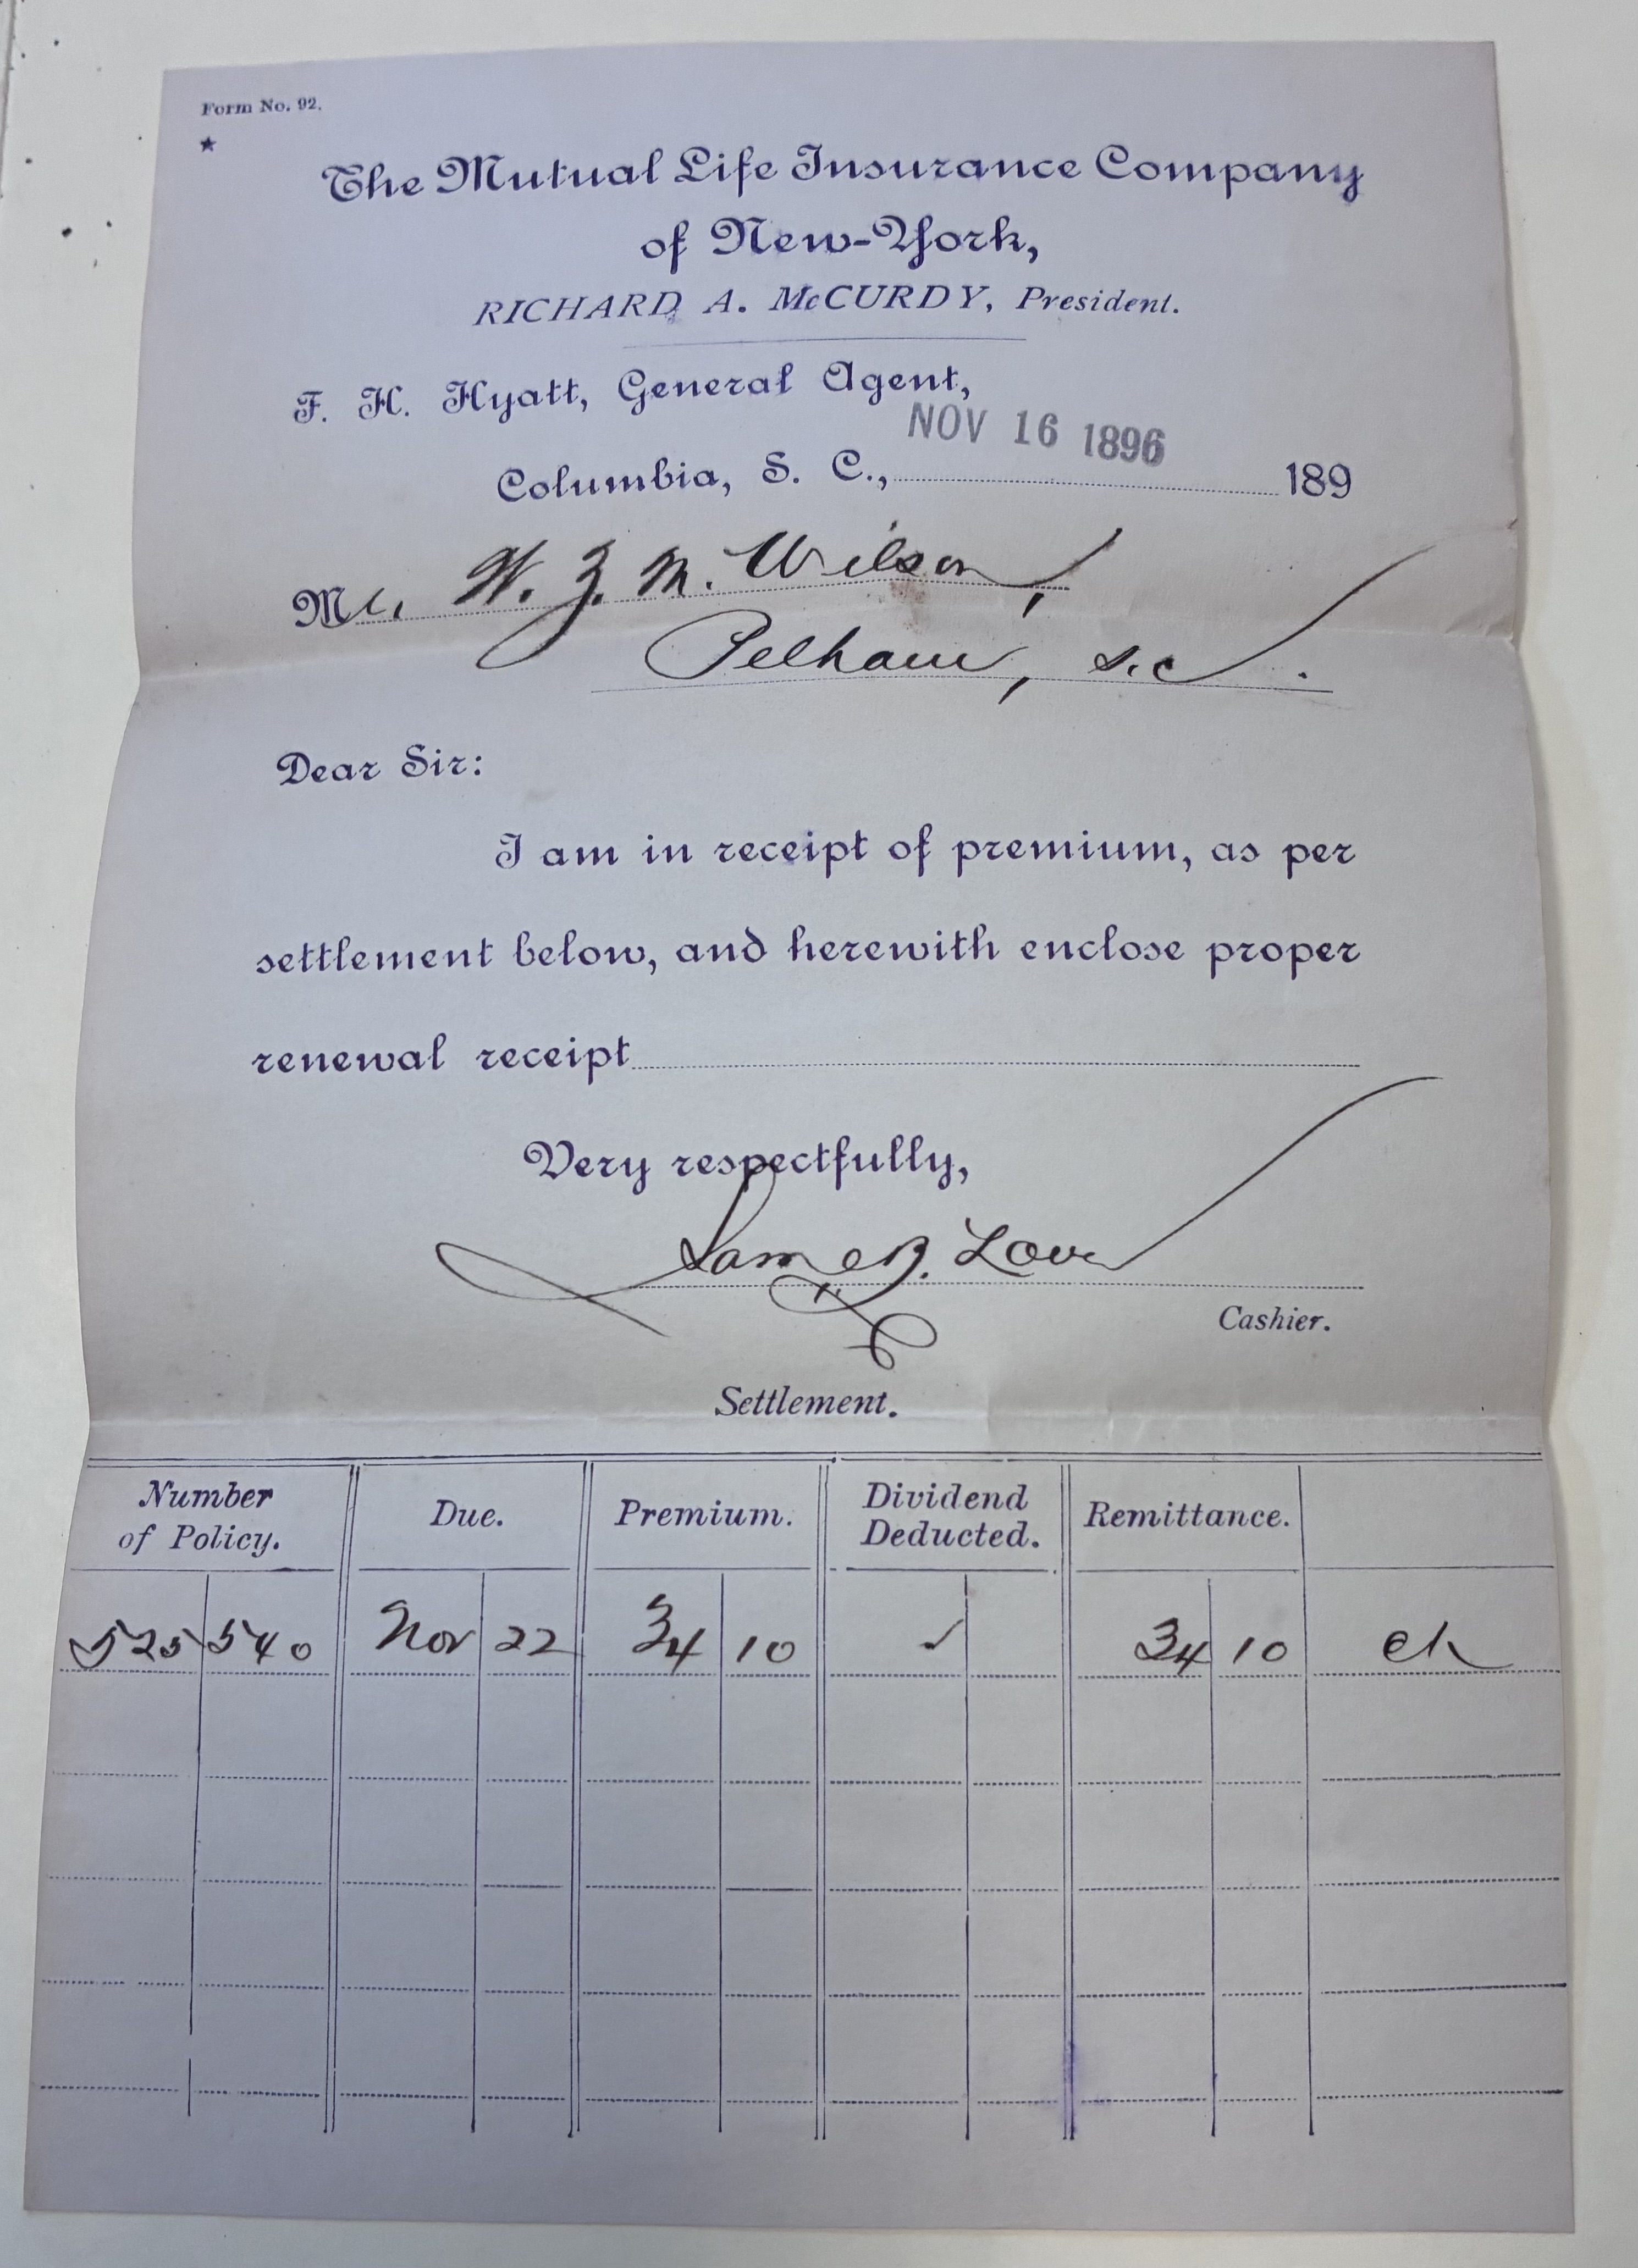 Form No. 92.
★
The Mutual Life Insurance Company
of New-York,
RICHARD A. McCURDY, President.
F. H. Hyatt, General Agent,
NOV 16 1896
Columbia, S. C., 189
Mr. W. Z. M. Wilson,
Pelham, S.C.
Dear Sir:
I am in receipt of premium, as per
settlement below, and herewith enclose proper
renewal receipt
Very respectfully,
Sam B. Love
Cashier.
Settlement.
Number of Policy. Due. Premium. Dividend Deducted. Remittance.
525 540 Nov 22 34 10 ✓ 34 10 ck